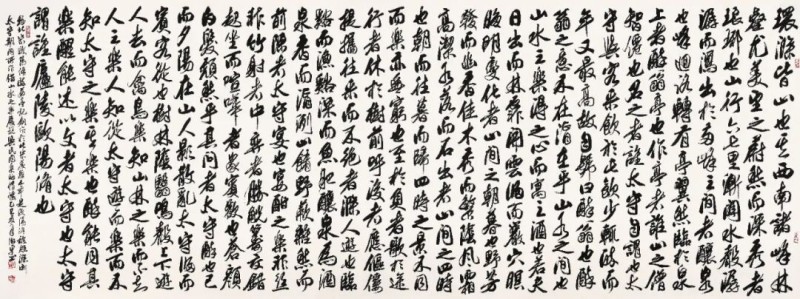 環滁皆山也其西南諸峰林
壑尤美望之蔚然而深秀者
琅琊也山行六七里漸聞水聲潺
潺而瀉出於兩峰之間者釀泉
也峰回路轉有亭翼然臨於泉
上者醉翁亭也作亭者誰山之僧
智僊也名之者誰太守自謂也太
守與客來飲於此飲少輒醉而
年又最高故自號曰醉翁也醉
翁之意不在酒在乎山水之間也
山水之樂得之心而寓之酒也若夫
日出而林霏開雲歸而巖穴暝
晦明變化者山間之朝暮也野芳
發而幽香佳木秀而繁陰風霜
高潔水落而石出者山間之四時
也朝而往暮而歸四時之景不同
而樂亦無窮也至於負者歌於途
行者休於樹前呼後者應傴僂
提攜往來而不絕者滁人遊也臨
谿而漁谿深而魚肥釀泉為酒
泉香而酒洌山肴野蔌雜然而
前陳者太守宴也宴酣之樂非絲
非竹射者中弈者勝觥籌交錯
起坐而喧嘩者衆賓歡也蒼顏
白髮頹然乎其間者太守醉也已
而夕陽在山人影散亂太守歸而
賓客從也樹林陰翳鳴聲上下遊
人去而禽鳥樂知山林之樂而不知
人之樂人知從太守遊而樂而不
知太守之樂其樂也醉能同其
樂醒能述以文者太守也太守
謂誰廬陵歐陽脩也